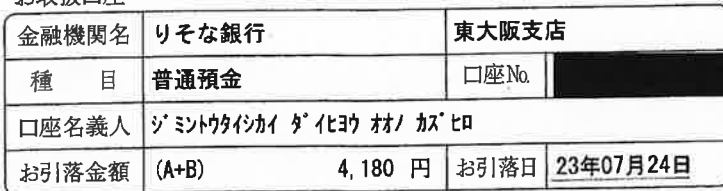 金融機関名 りそな銀行 東大阪支店
種 目 普通預金 口座No.
口座名義人 ジミントウタイシカイ ダイヒヨウ オオノ カズヒロ
お引落金額 (A+B) 4,180 円 お引落日 23年07月24日